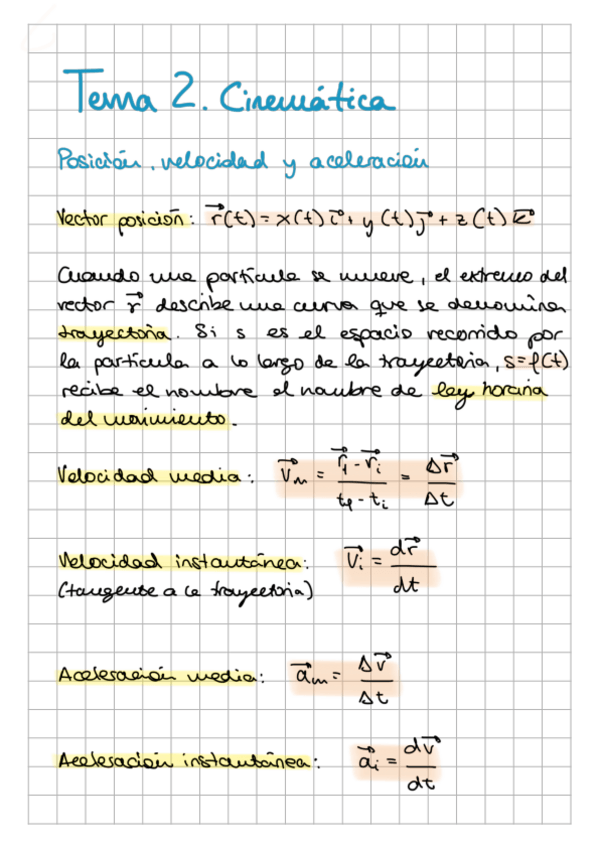 Tema 2. Cinemática
Posición, velocidad y aceleración
Vector posición: r⃗(t) = x(t) i⃗ + y(t) j⃗ + z(t) k⃗
Cuando una partícula se mueve, el extremo del
vector r⃗ describe una curva que se denomina
trayectoria. Si s es el espacio recorrido por
la partícula a lo largo de la trayectoria, s=f(t)
recibe el nombre el nombre de ley horaria
del movimiento.
Velocidad media: v⃗m = (r⃗f - r⃗i)/(tf - ti) = Δr⃗/Δt
Velocidad instantánea: v⃗i = dr⃗/dt
(tangente a la trayectoria)
Aceleración media: a⃗m = Δv⃗/Δt
Aceleración instantánea: a⃗i = dv⃗/dt